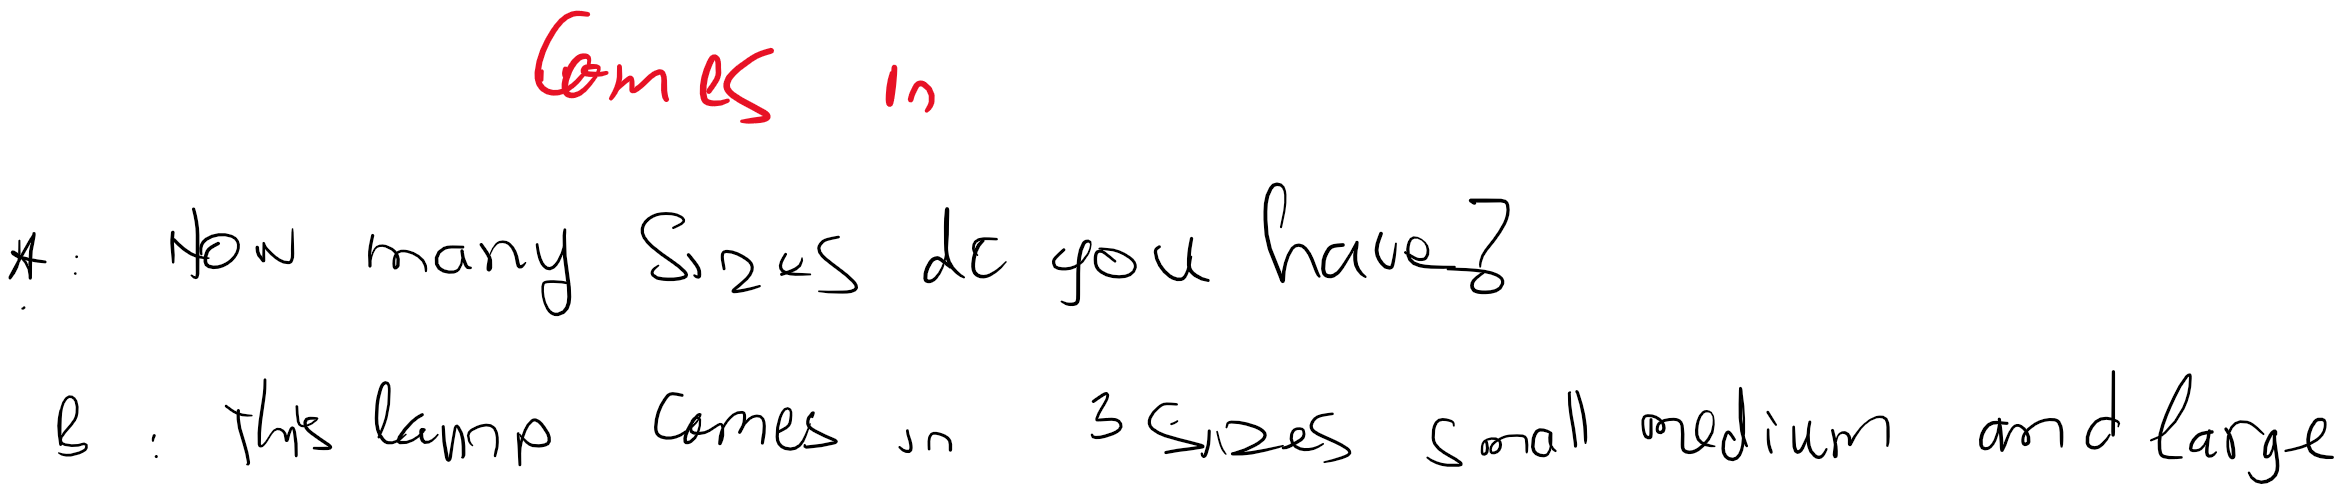 Comes in
A: How many Sizes do you have?
B: This lamp comes in 3 Sizes small medium and large